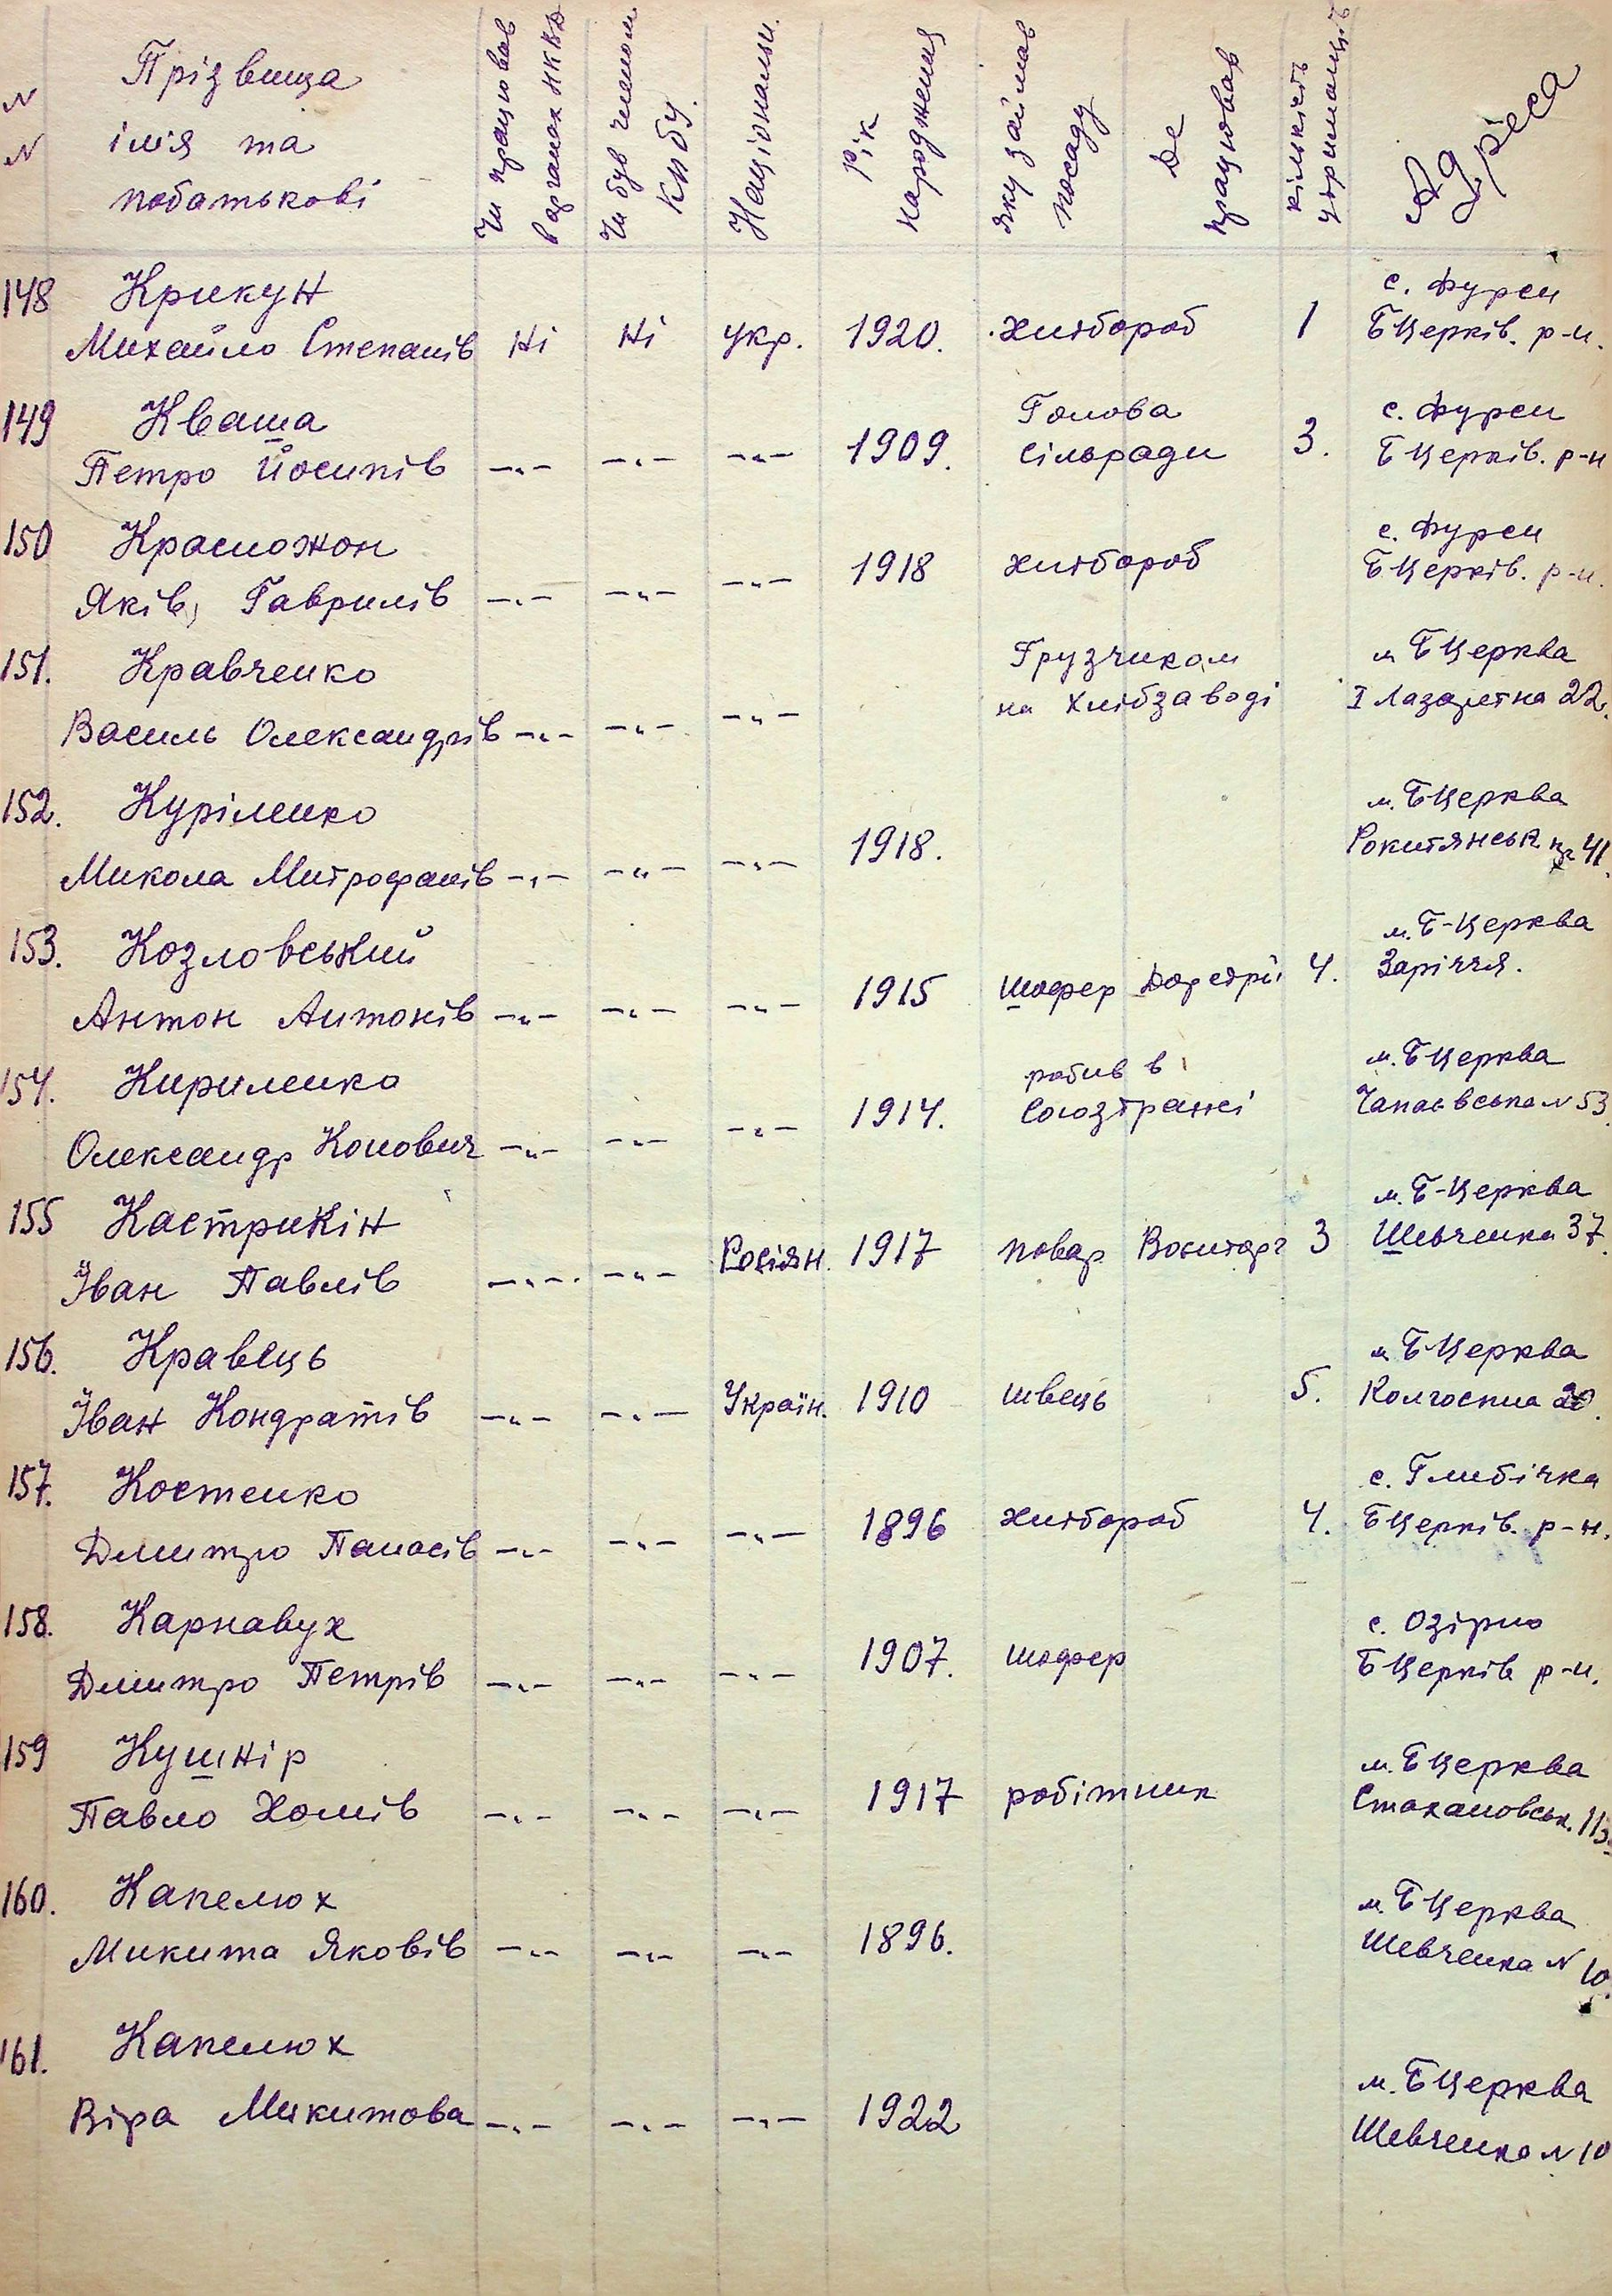 N N
Прізвища
імя та
побатькові
Чи працював в органах НКВД
Чи був членом КПбУ.
Національн.
Рік народження
яку займав посаду
Де працював
кількість утриманців
Адреса
148 Крикун с. Фурси
Михайло Степанів Ні Ні укр. 1920. хлібороб 1 БЦерків. р-н.
149 Кваша Голова с. Фурси
Петро Йосипів —"— —"— —"— 1909. сільради 3. БЦерків. р-н
150 Красножон с. Фурси
Яків, Гаврилів —"— —"— —"— 1918 хлібороб БЦерків. р-н.
151. Кравченко Грузчиком м БЦерква
Василь Олександрів —"— —"— —"— на хлібзаводі І Лазаретна 22.
152. Куріленко м. БЦерква
Микола Митрофанів —"— —"— —"— 1918. Рокитянськ 41.
153. Козловський м. Б-Церква
Антон Антонів —"— —"— —"— 1915 Шофер 4. Заріччя.
154. Кириленко робив в м. БЦерква
Олександр Конович —"— —"— —"— 1914. Союзтрансі Чапаєвська N 53
155 Кастрикін м. Б-Церква
Іван Павлів —"— —"— Росіян. 1917 повар Воєнторг 3 Шевченка 37.
156. Кравець м БЦерква
Іван Кондратів —"— —"— Україн. 1910 швець 5. Колгоспна 20.
157. Костенко с. Глибічка
Дмитро Панасів —"— —"— —"— 1896 хлібороб 4. БЦерків. р-н.
158. Карнавух с. Озірно
Дмитро Петрів —"— —"— —"— 1907. шофер БЦерків р-н.
159 Кушнір м. БЦерква
Павло Хомів —"— —"— —"— 1917 робітник Стахановськ.
160. Капелюх м. БЦерква
Микита Яковів —"— —"— —"— 1896. Шевченка N 10.
161. Капелюх м. БЦерква
Віра Микитова —"— —"— —"— 1922 Шевченка N 10